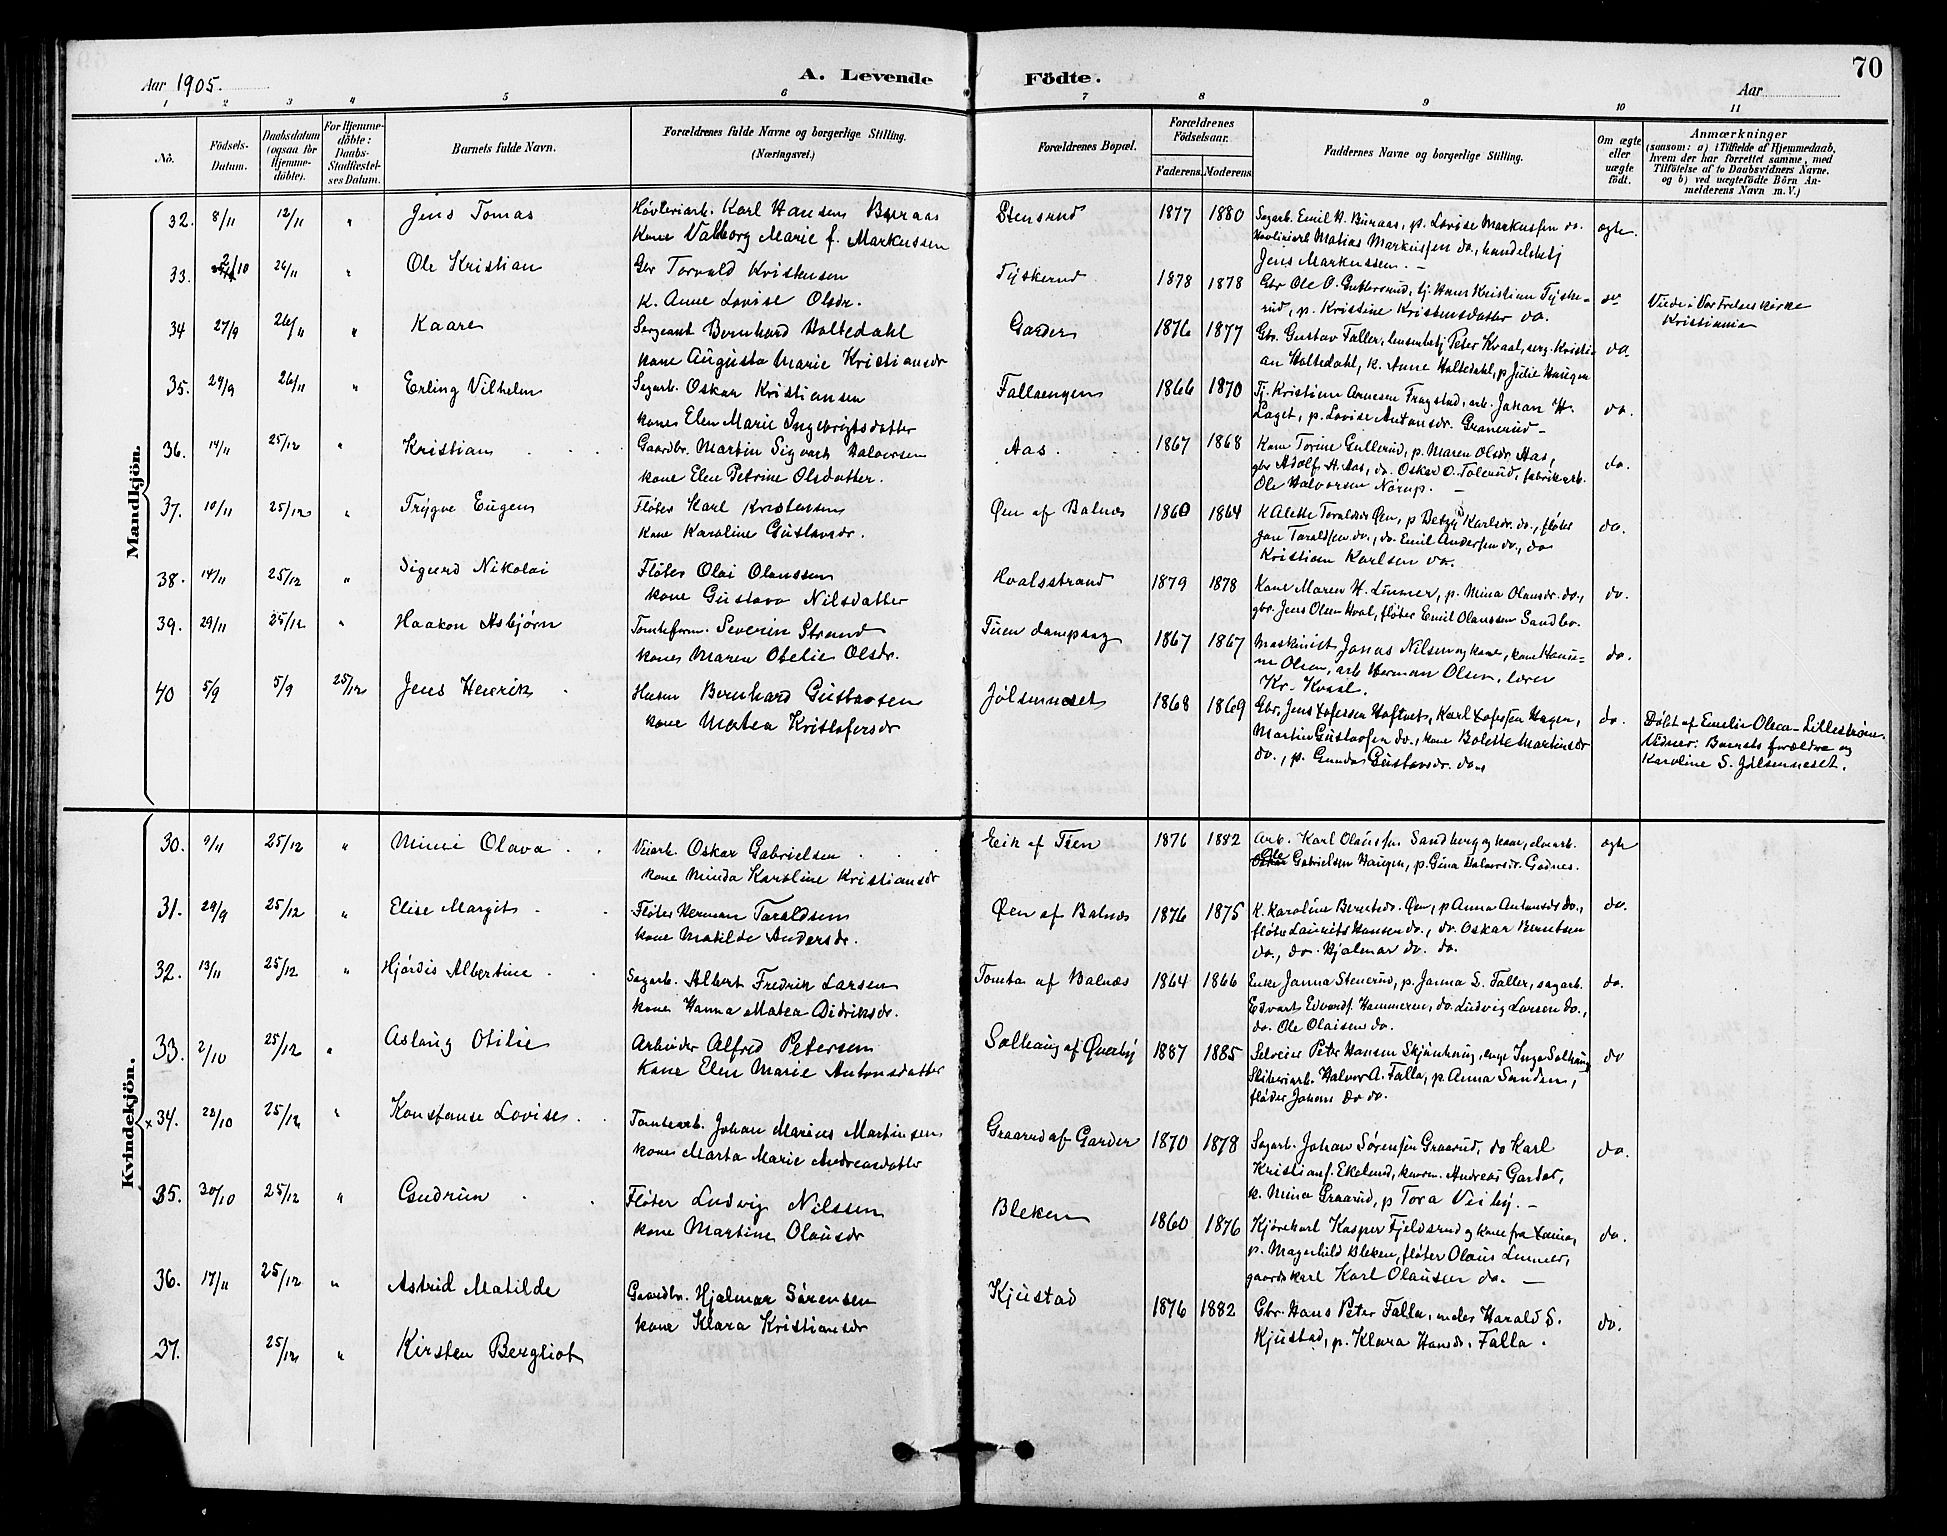 70
Aar 1905.
A. Levende Födte.
Aar
1 2 3 4 5 6 7 8 9 10 11
No.
Födsels-Datum.
Daabsdatum (ogsaa for Hjemme-döbte).
For Hjemme-döbte: Daabs-Stadfæstel-ses Datum.
Barnets fulde Navn.
Forældrenes fulde Navne og borgerlige Stilling.
(Næringsvei.)
Forældrenes Bopæl.
Forældrenes Födselsaar.
Faderens. Moderens.
Faddernes Navne og borgerlige Stilling.
Om ægte eller uægte födt.
Anmærkninger
(saasom: a) i Tilfælde af Hjemmedaab,
hvem der har forrettet samme, med
Tilföielse af to Daabsvidners Navne.
og b) ved uægtefödte Börn An-
melderens Navn m. V.)
Mandkjön.
32. 8/11 12/11 " Jens Tomas Høvleriarb. Karl Hansen Buraas Stensrud 1877 1880 Sagarb. Emil H. Buraas, p. Lovise Markussen do. ægte.
Kone Valborg Marie f. Markussen høvleriarb Matias Markussen do., handelsbetj
Jens Markussen. —
33. 2/10 26/11 " Ole Kristian Gbr Torvald Kristensen Tyskerud 1878 1878 Gbr Ole O. Guttersrud, tj. Hans Kristian Tyske- do Viede i Vor Frelsers kirke
K. Anne Lovise Olsdr. rud, p. Kristine Kristensdatter do. Kristiania
34 27/9 26/11 " Kaare Sergeant Bernhard Holtedahl Garder 1876 1877 Gbr. Gustav Faller, lensmbetj Peter Kvaal, serg. Kristi- do.
kone Augusta Marie Kristiansdr an Holtedahl, k. Anne Holtedahl, p Julie Haugen
35. 29/9 26/11 " Erling Vilhelm Sagarb. Oskar Kristiansen Fallaengen 1866 1870 Tj. Kristian Arnesen Fragstad, arb. Johan H. do.
kone Elen Marie Ingebrigtsdatter Laget, p. Lovise Antonsdr. Granerud —
36. 14/11 25/12 " Kristian Gaardbr. Martin Sigvart Halvorsen Aas. 1867 1868 Kone Torine Gullerud, p. Maren Olsdr Aas, do.
kone Elen Petrine Olsdatter. gbr Adolf H. Aas, do. Oskar O. Tolerud, fabrikarb.
Ole Halvorsen Nørup. —
37. 10/11 25/12 " Trygve Eugen Fløter Karl Kristensen Øen af Balnæs 1860 1864 K Alette Toraldsdr Øen, p Betzy Karlsdr. do., fløter do.
Kone Karoline Gustavsdr. Jon Taraldsen do., do. Emil Andersen do., do
Kristian Karlsen do.
38. 14/11 25/12 " Sigurd Nikolai Fløter Olai Olaussen Hvalsstrand 1879 1878 Kone Maren H. Linner, p. Mina Olausdr. do., do.
kone Gustava Nilsdatter gbr. Jens Olsen Hval, fløter Emil Olaussen Sandbo.
39. 29/11 25/12 " Haakon Asbjørn Tomteform. Severin Strand Tien dampsag 1867 1867 Maskinist Jonas Nilsen og kone, kone Hann- do.
kone Maren Otelie Olsdr. ne Olsen, arb Herman Olsen, lærer
Kr. Kvaal.
40 5/9 5/9 25/12 Jens Henrik Husm Bernhard Gustavsen Jølsenneset 1868 1869 Gbr. Jens Tofessen Haftnes, Karl Tofessen Hagen, do. Døbt af Emelie Olsen - Lillestrøm.
kone Matea Kristofersdr Martin Gustavsen do., kone Bolette Martinsdr Vidner: Barnets forældre og
do., p. Gunda Gustavsdr. do. Karoline S. Jølsenneset.
Kvindekjön.
30. 9/11 25/12 " Minni Olava Veiarb. Oskar Gabrielsen Eik af Tien 1876 1882 Arb. Karl Olaussen Sandberg og kone, elvarb. ægte
kone Minda Karoline Kristiansdr Ole Gabrielsen Haugen, p. Gina Halvorsdr. Godnes.
31. 29/9 25/12 " Elise Margit Fløter Herman Taraldsen Øen af Balnæs 1876 1875 K. Karoline Berntsdr. Øen, p Anna Antonsdr do., do.
kone Matilde Andersdr. fløter Laurits Hansen do., do. Oskar Berntsen
do., do. Hjalmar do. do.
32. 13/11 25/12 " Hjørdis Albertine Sagarb. Albert Fredrik Larsen Tomta af Balnæs 1864 1866 Enke Janna Stenerud, p. Janna S. Faller, sagarb. do.
kone Hanna Matea Didriksdr. Edvart Edvardsf. Hammeren, do. Ludvig Larsen do.,
do. Ole Olaisen do.
33. 2/10 25/12 " Aslaug Otilie Arbeider Alfred Petersen Solhaug af Øverby 1887 1885 Selveier Peter Hansen Skjønhaug, enge Inga Solhaug do
Kone Elen Marie Antonsdatter Sliberiarb. Halvor A. Falla, p Anna Sanden,
fløder Johans do do.
x 34. 22/10 25/12 " Konstanse Lovise Tomtearb. Johan Marius Martinsen Graarud af Garder 1870 1878 Sagarb. Johan Sørensen Graarud, do Karl do.
kone Marta Marie Andreasdatter Kristiansf. Ekelund, Andreas Garder,
k. Mina Graarud, p Tora Veiby. —
35. 30/10 25/12 " Gudrun Fløter Ludvig Nilssen Bleken 1860 1876 Kjørekarl Kasper Fjeldsrud og kone fra do.
kone Martine Olausdr p. Magnhild Bleken, fløter Olaus Linner,
gaardskarl Karl Olausen do. —
36. 17/11 25/12 " Astrid Matilde Gaardbr. Hjalmar Sørensen Kjustad 1876 1882 Gbr. Hans Peter Falla, Harald S. do.
kone Klara Kristiansdr Kjustad, p. Klara Hansdr. Falla.
37. 25/12 " Kirsten Bergliot